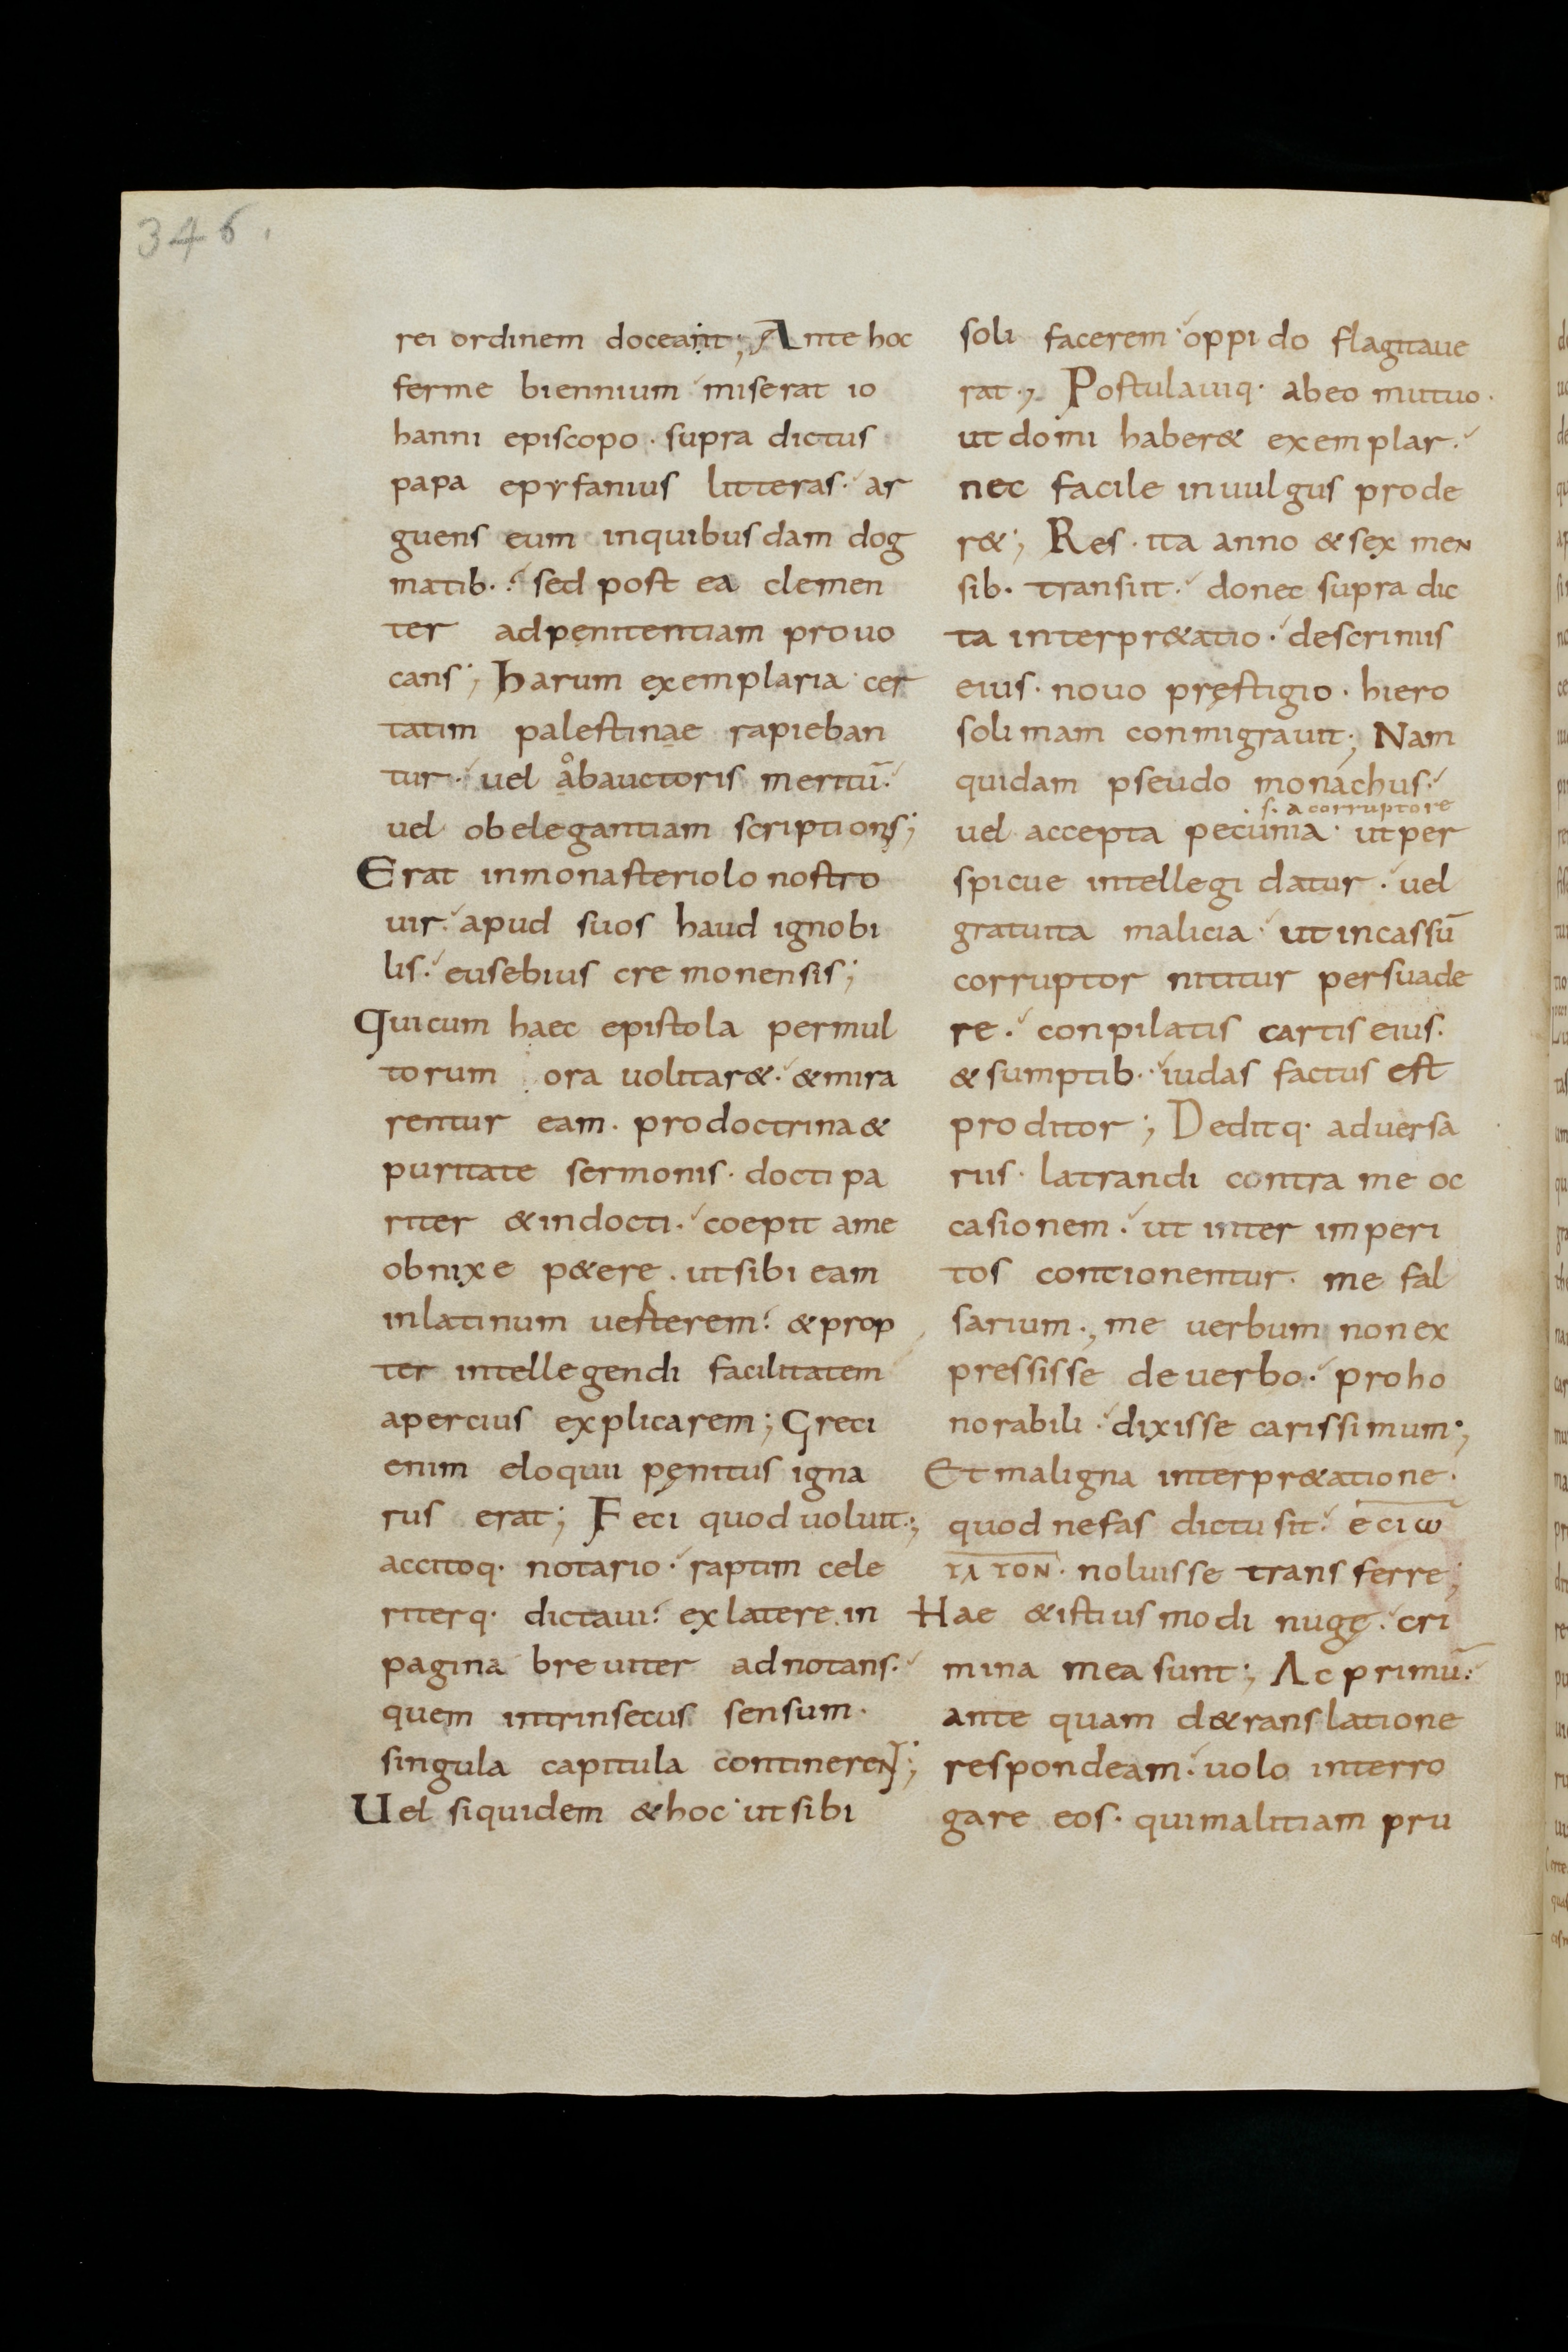 346.
rei ordinem doceant; Ante hoc
ferme biennium miserat io
hanni episcopo · supra dictus
papa epyfanius litteras · ar
guens eum inquibusdam dog
matib · sed post ea clemen
ter adpęnitentiam prouo
cans; harum exemplaria cer
tatim palestinae rapieban
tur · uel åbauctoris meritū ·
uel obelegantiam scriptionis;
Erat inmonasteriolo nostro
uir · apud suos haud ignobi
lis · eusebius cremonensis;
Quicum haec epistola permul
torum ora uolitar& · &mira
rentur eam · prodoctrina &
puritate sermonis · docti pa
riter &indocti · coepit ame
obnixe p&ere · utsibi eam
inlatinum uerterem · &prop
ter intellegendi facilitatem
apercius explicarem; Greci
enim eloquii pęnitus igna
rus erat; Feci quod uoluit;
accitoq· notario · raptim cele
riterq· dictaui · exlatere in
pagina breuiter adnotans ·
quem intrinsecus sensum ·
singula capitula continerent;
Uel siquidem &hoc · utsibi
soli facerem · oppido flagitaue
rat; Postulauiq· abeo mutuo ·
ut domi haber& exemplar ·
nec facile inuulgus prode
r&; Res · ita anno &sex men
sib· transiit · donec supra dic
ta interpr&atio · descriniis
eius · nouo pręstigio · hiero
solimam conmigrauit; Nam
quidam pseudo monachus ·
·s· a corruptore
uel accepta pecunia · utper
spicue intellegi datur · uel
gratuita malicia · ut incassū
corruptor nititur persuade
re · conpilatis cartis eius ·
&sumptib· · iudas factus est
proditor; Deditq· aduersa
riis · latrandi contra me oc
casionem · ut inter imperi
tos contionentur · me fal
sarium ·, me uerbum nonex
pressisse deuerbo · proho
norabili · dixisse carissimum;
Et maligna interpr&atione ·
quod nefas dictu sit · eciω
tλ τον · noluisse transferre;
Hae &istiusmodi nugę · cri
mina mea sunt; Ac primū ·
ante quam d&ranslatione
respondeam · uolo interro
gare eos · quimalitiam pru